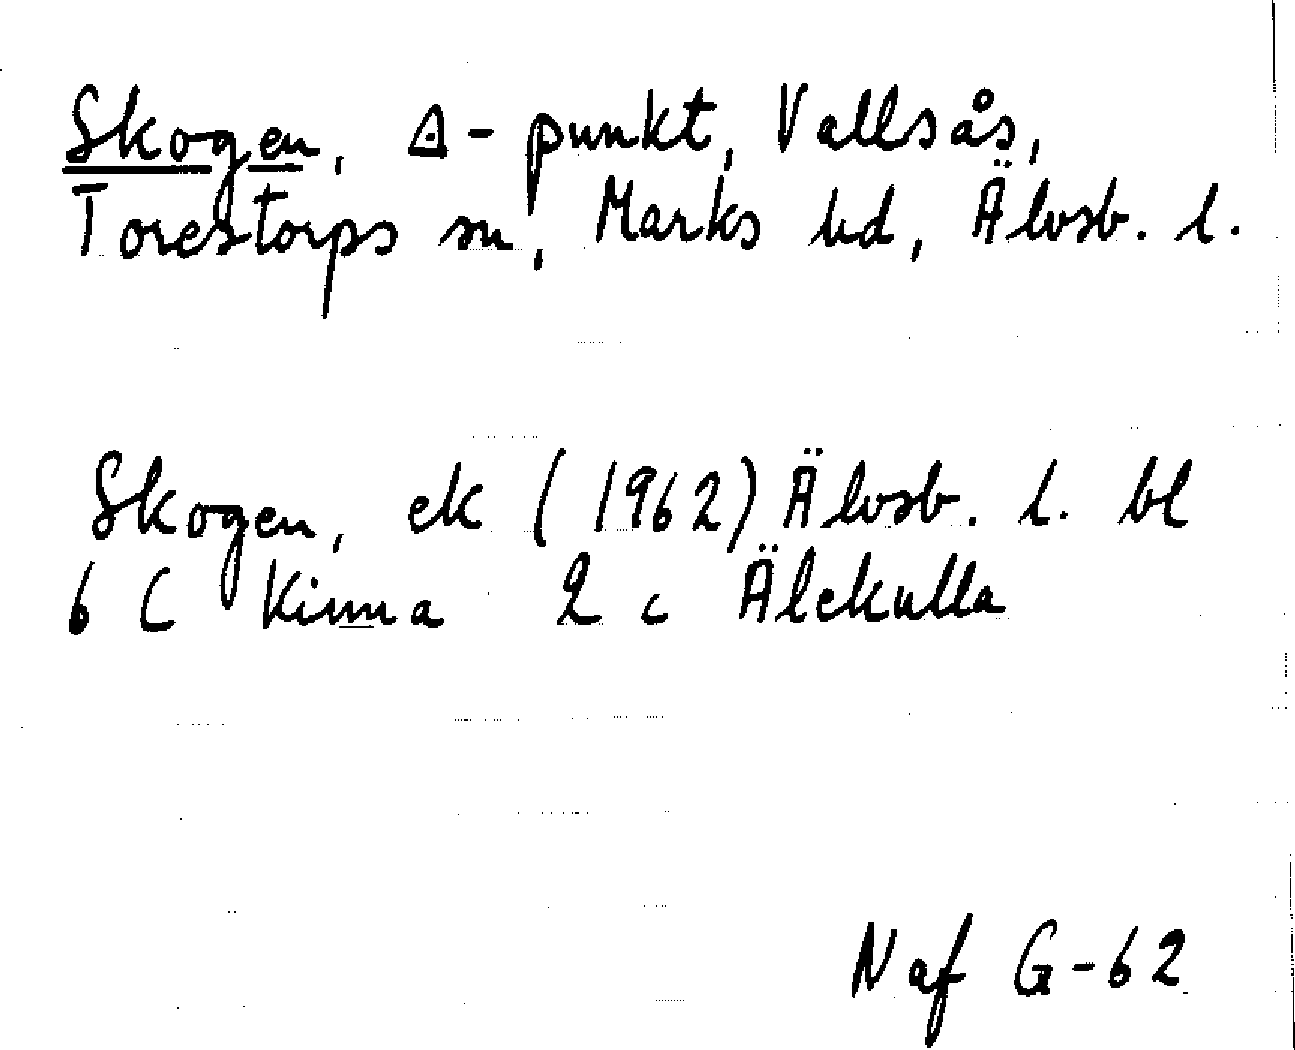 Skogen, △-punkt, Vallsås,
Torestorps sn, Marks hd, Älvsb. l.
Skogen, ek (1962) Älvsb. l. bl
6 C Kinna 2 c Älekulla
Naf G-62